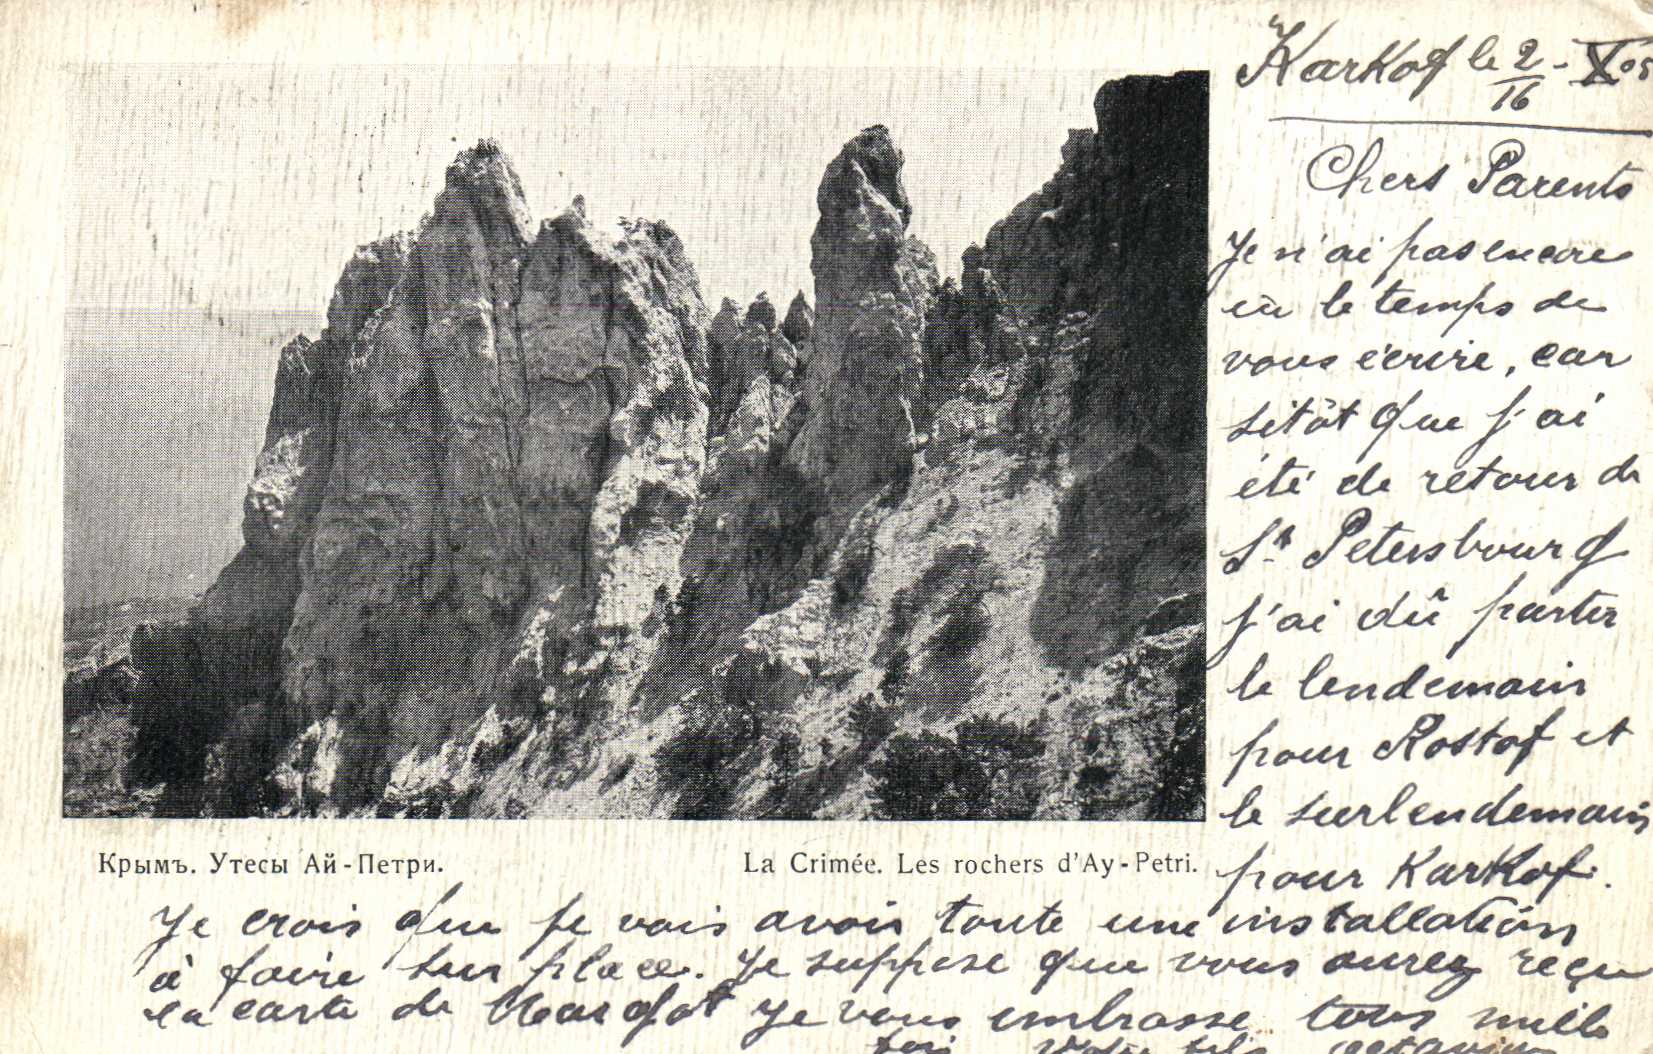 Karkof le 2/16 - X 05
Chers Parents
Je n'ai pas encore
eu le temps de
vous écrire, car
sitôt que j'ai
été de retour de
St Petersbourg
j'ai dû partir
le lendemain
pour Rostof et
le surlendemain
pour Karkof.
Крымъ. Утесы Ай-Петри.
La Crimée. Les rochers d'Ay-Petri.
Je crois que je vais avoir toute une installation
à faire sur place. Je suppose que vous aurez reçu
la carte de Margot Je vous embrasse tous mille
fois Votre fils Octavien